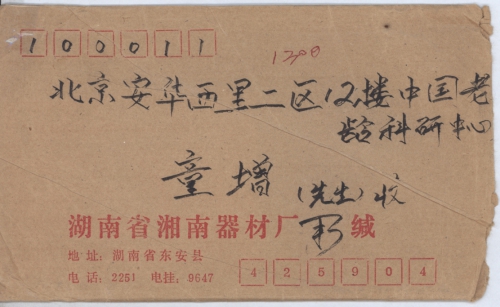 100011
1200
北京安华西里二区12楼中国老
龄科研中心
童增(先生)收
湖南省湘南器材厂 缄
地址:湖南省东安县
电话:2251 电挂:9647
425904